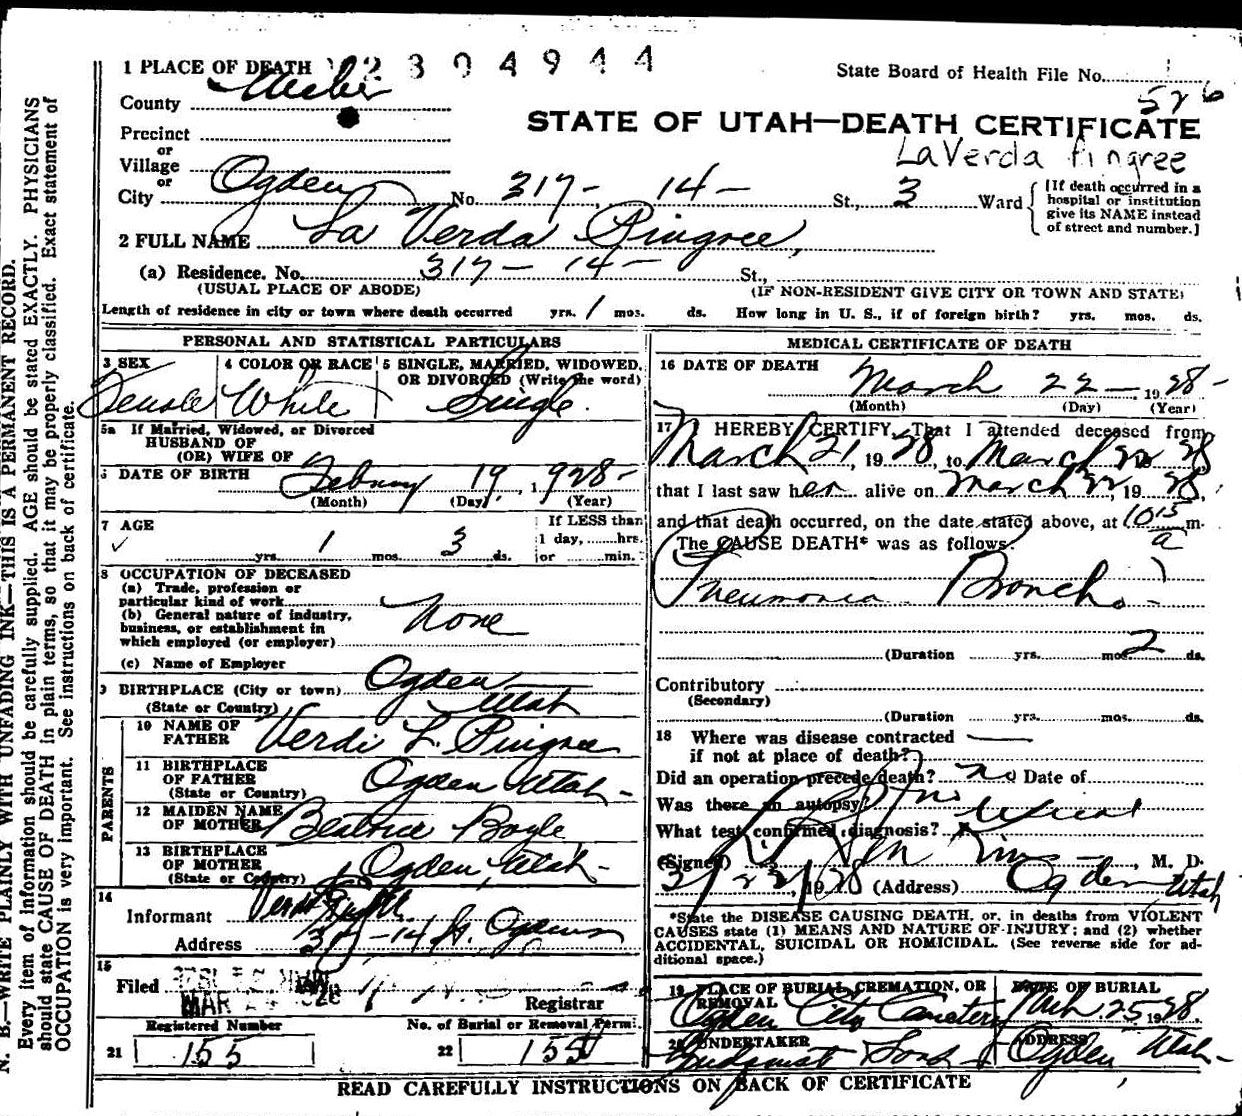 N. B.—WRITE PLAINLY WITH UNFADING INK—THIS IS A PERMANENT RECORD.
Every item of information should be carefully supplied. AGE should be stated EXACTLY. PHYSICIANS
should state CAUSE OF DEATH in plain terms, so that it may be properly classified. Exact statement of
OCCUPATION is very important. See instructions on back of certificate.
2304944
1 PLACE OF DEATH
State Board of Health File No.
526
County Weber
STATE OF UTAH—DEATH CERTIFICATE
LaVerda Pingree
Precinct
or
Village
or
City Ogden No. 317- 14- St., 3 Ward
[If death occurred in a hospital or institution give its NAME instead of street and number.]
2 FULL NAME La Verda Pingree,
(a) Residence. No. 317- 14- St.,
(USUAL PLACE OF ABODE) (IF NON-RESIDENT GIVE CITY OR TOWN AND STATE)
Length of residence in city or town where death occurred yrs. 1 mos. ds. How long in U. S., if of foreign birth? yrs. mos. ds.
PERSONAL AND STATISTICAL PARTICULARS
3 SEX 4 COLOR OR RACE 5 SINGLE, MARRIED, WIDOWED, OR DIVORCED (Write the word)
Female White Single
5a If Married, Widowed, or Divorced
HUSBAND OF
(OR) WIFE OF
6 DATE OF BIRTH February 19, 1928-
(Month) (Day) (Year)
7 AGE
yrs. 1 mos. 3 ds.
If LESS than
1 day, hrs.
or min.
8 OCCUPATION OF DECEASED
(a) Trade, profession or
particular kind of work
(b) General nature of industry,
business, or establishment in
which employed (or employer)
None
(c) Name of Employer
9 BIRTHPLACE (City or town) Ogden
(State or Country) Utah
PARENTS
10 NAME OF FATHER Verdi L. Pingree
11 BIRTHPLACE OF FATHER (State or Country) Ogden Utah-
12 MAIDEN NAME OF MOTHER Beatrice Boyle
13 BIRTHPLACE OF MOTHER (State or Country) Ogden, Utah-
14
Informant
Address 317-14 St. Ogden
15
Filed MAR
Registrar
Registered Number No. of Burial or Removal Permit
21 155 22 155
MEDICAL CERTIFICATE OF DEATH
16 DATE OF DEATH
March 22- 1928-
(Month) (Day) (Year)
17 I HEREBY CERTIFY, That I attended deceased from
March 21, 1928, to March 22 28
that I last saw her alive on March 22, 1928,
and that death occurred, on the date stated above, at 10 15 a m.
The CAUSE DEATH* was as follows:
Pneumonia Broncho-
(Duration yrs. mos. 2 ds.
Contributory
(Secondary)
(Duration yrs. mos. ds.
18 Where was disease contracted
if not at place of death?
Did an operation precede death? no Date of
Was there an autopsy? no
What test confirmed diagnosis?
(Signed) , M. D.
3/22/, 1928 (Address) Ogden Utah
*State the DISEASE CAUSING DEATH, or, in deaths from VIOLENT
CAUSES state (1) MEANS AND NATURE OF INJURY; and (2) whether
ACCIDENTAL, SUICIDAL OR HOMICIDAL. (See reverse side for ad-
ditional space.)
19 PLACE OF BURIAL, CREMATION, OR REMOVAL DATE OF BURIAL
Ogden City Cemetery Mch 25 1928.
20 UNDERTAKER ADDRESS
Lindquist Sons Ogden Utah-
READ CAREFULLY INSTRUCTIONS ON BACK OF CERTIFICATE